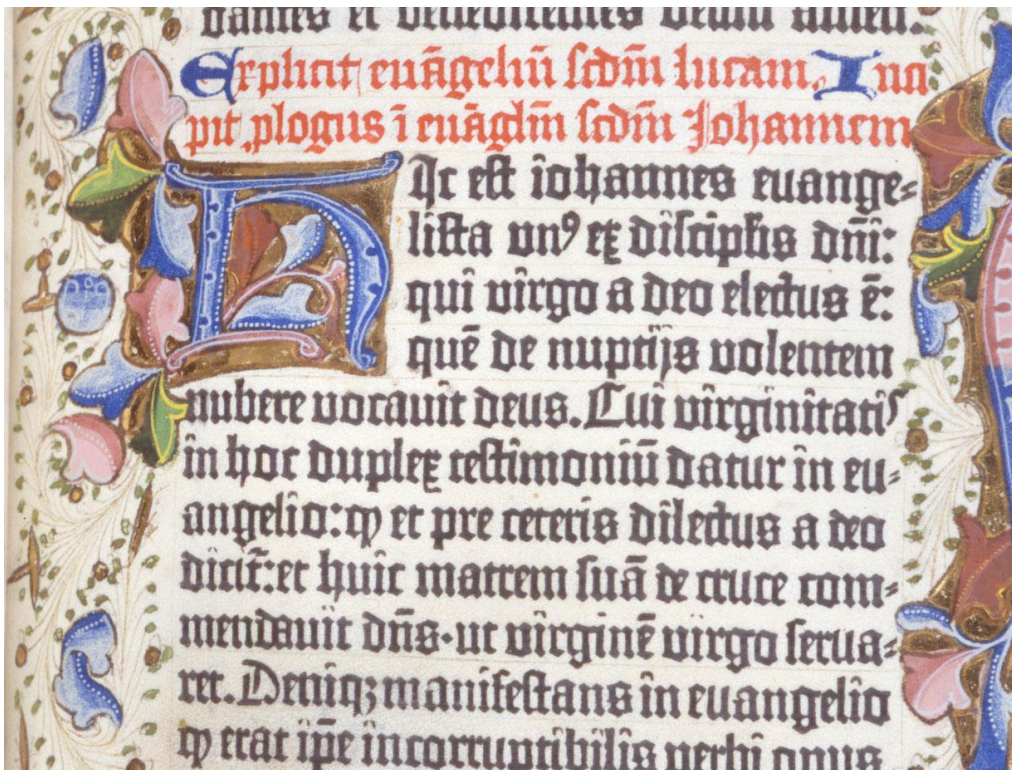 dantes et benedicentes deum amen.
Explicit euāgeliū scdm̄ lucam. Inci
pit ꝓlogus ī euāgl̄m scdm̄ Johannem
Hic est iohannes euange-
lista unꝰ ex discipl̄is dn̄i:
qui virgo a deo electus ē:
quē de nuptijs volentem
nubere vocauit deus. Cui virginitatꝭ
in hoc duplex testimoniū datur in eu-
angelio: ꝙ et pre ceteris dilectus a deo
dicit̄: et huic matrem suā de cruce com-
mendauit dn̄s. ut virginē virgo serua-
ret. Deniqꝫ manifestans in euangelio
ꝙ erat ip̄e incorruptibilis verbi opus